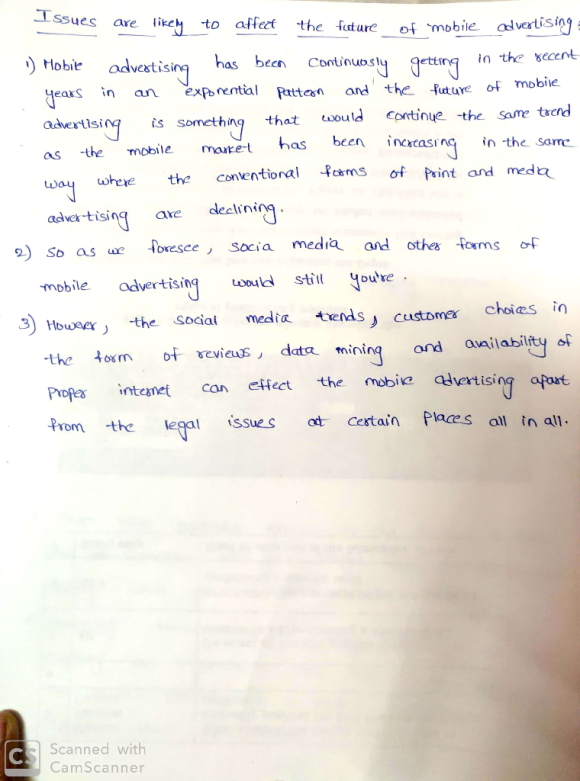 Issues are likely to affect the future of mobile advertising:
1) Mobile advertising has been continuously getting in the recent
years in an exponential pattern and the future of mobile
advertising is something that would continue the same trend
as the mobile market has been increasing in the same
way where the conventional forms of print and media
advertising are declining.
2) So as we foresee, socia media and other forms of
mobile advertising would still you're.
3) However, the social media trends, customer choices in
the form of reviews, data mining and availability of
proper internet can effect the mobile advertising apart
from the legal issues at certain places all in all.
CS Scanned with
CamScanner